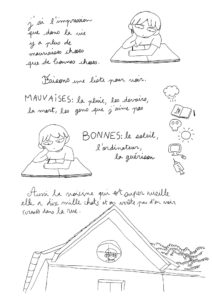 j'ai l'impression
que dans la vie
il y a plus de
mauvaises choses
que de bonnes choses.
Faisons une liste pour voir.
MAUVAISES: la pluie, les devoirs,
la mort, les gens que j'aime pas
BONNES: le soleil,
l'ordinateur,
la guérison
Aussi la voisine qui est super vieille
elle a dix mille chats et on arrête pas d'en voir
dans la rue.